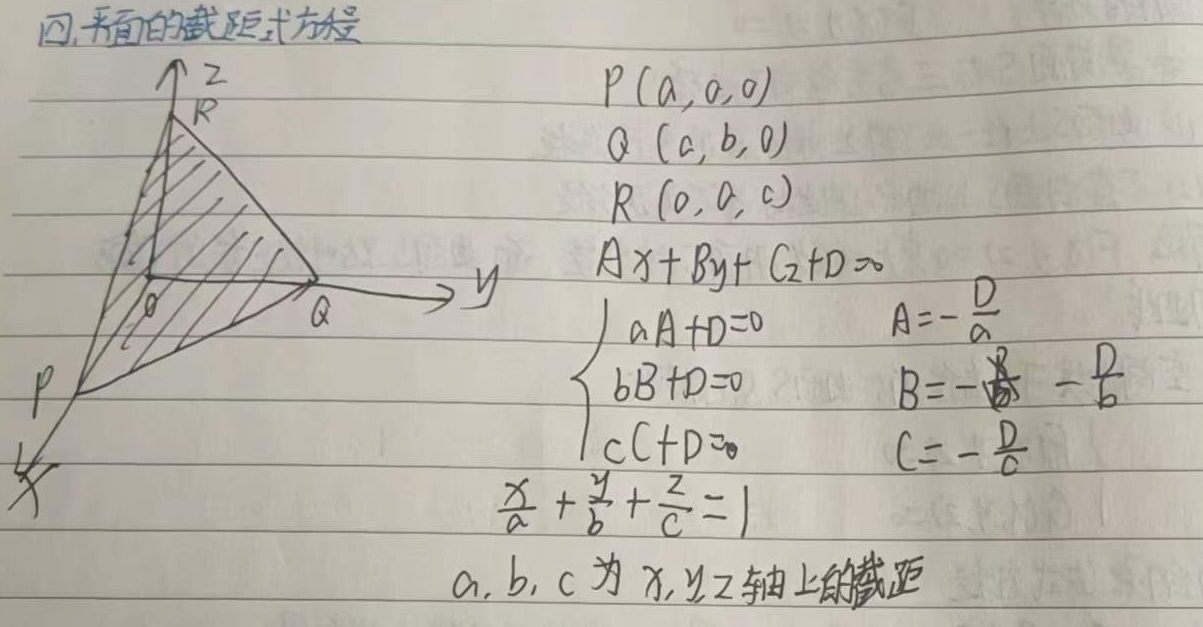 四.平面的截距式方程
Z
R
O
Q
y
P
X
P(a,0,0)
Q(0,b,0)
R(0,0,c)
Ax+By+Cz+D=0
aA+D=0 A=-\frac{D}{a}
bB+D=0 B=- -\frac{D}{b}
cC+D=0 C=-\frac{D}{c}
\frac{x}{a}+\frac{y}{b}+\frac{z}{c}=1
a,b,c为x,y,z轴上的截距